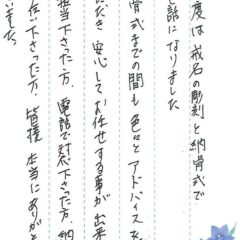 度は戒名の彫刻と納骨式で
話になりました
骨式までの間も色々とアドバイスを
ただき安心してお任せする事が出来
担当下さった方、電話で対応下さった方、納
伝い下さった方、皆様本当にありが
いました